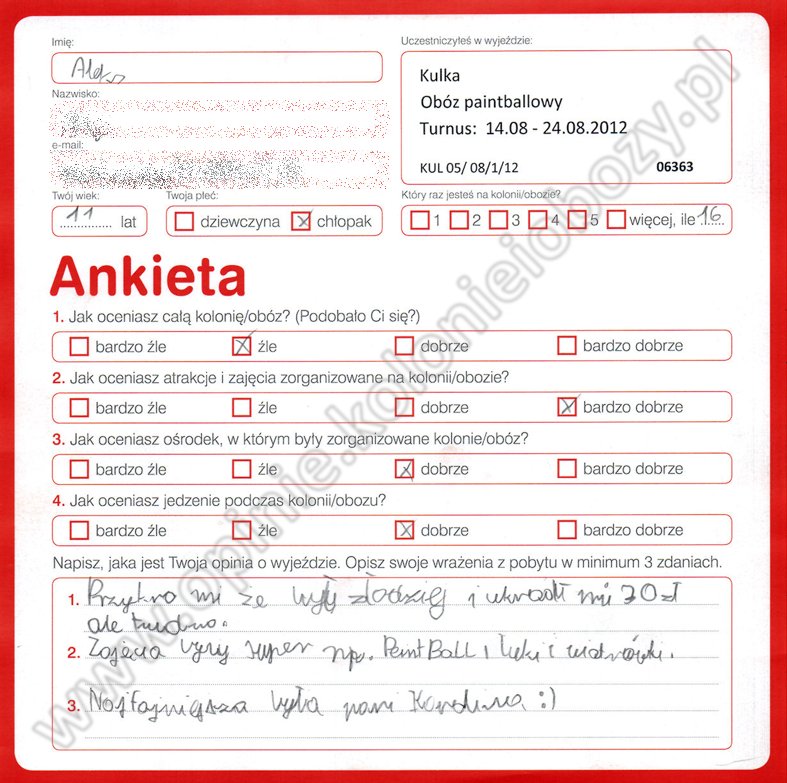 Imię:
Uczestniczyłeś w wyjeździe:
Kulka
Obóz paintballowy
Turnus: 14.08 - 24.08.2012
KUL 05/ 08/1/12 06363
Nazwisko:
e-mail:
Twój wiek:
11 lat
Twoja płeć:
dziewczyna chłopak
Który raz jesteś na kolonii/obozie?
1 2 3 4 5 więcej, ile 16
Ankieta
1. Jak oceniasz całą kolonię/obóz? (Podobało Ci się?)
bardzo źle źle dobrze bardzo dobrze
2. Jak oceniasz atrakcje i zajęcia zorganizowane na kolonii/obozie?
bardzo źle źle dobrze bardzo dobrze
3. Jak oceniasz ośrodek, w którym były zorganizowane kolonie/obóz?
bardzo źle źle dobrze bardzo dobrze
4. Jak oceniasz jedzenie podczas kolonii/obozu?
bardzo źle źle dobrze bardzo dobrze
Napisz, jaka jest Twoja opinia o wyjeździe. Opisz swoje wrażenia z pobytu w minimum 3 zdaniach.
1. Przykro mi że był złodziej i ukradł mi 30 zł
ale trudno.
2. Zajęcia były super np. PaintBall i łuki i
3. Najfajniejsza była pani :)
www.opinie.kolonieiobozy.pl